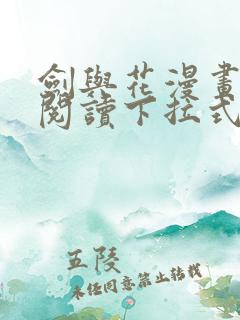 劍與花漫畫
閱讀下拉式
五陵
未經同意禁止轉載